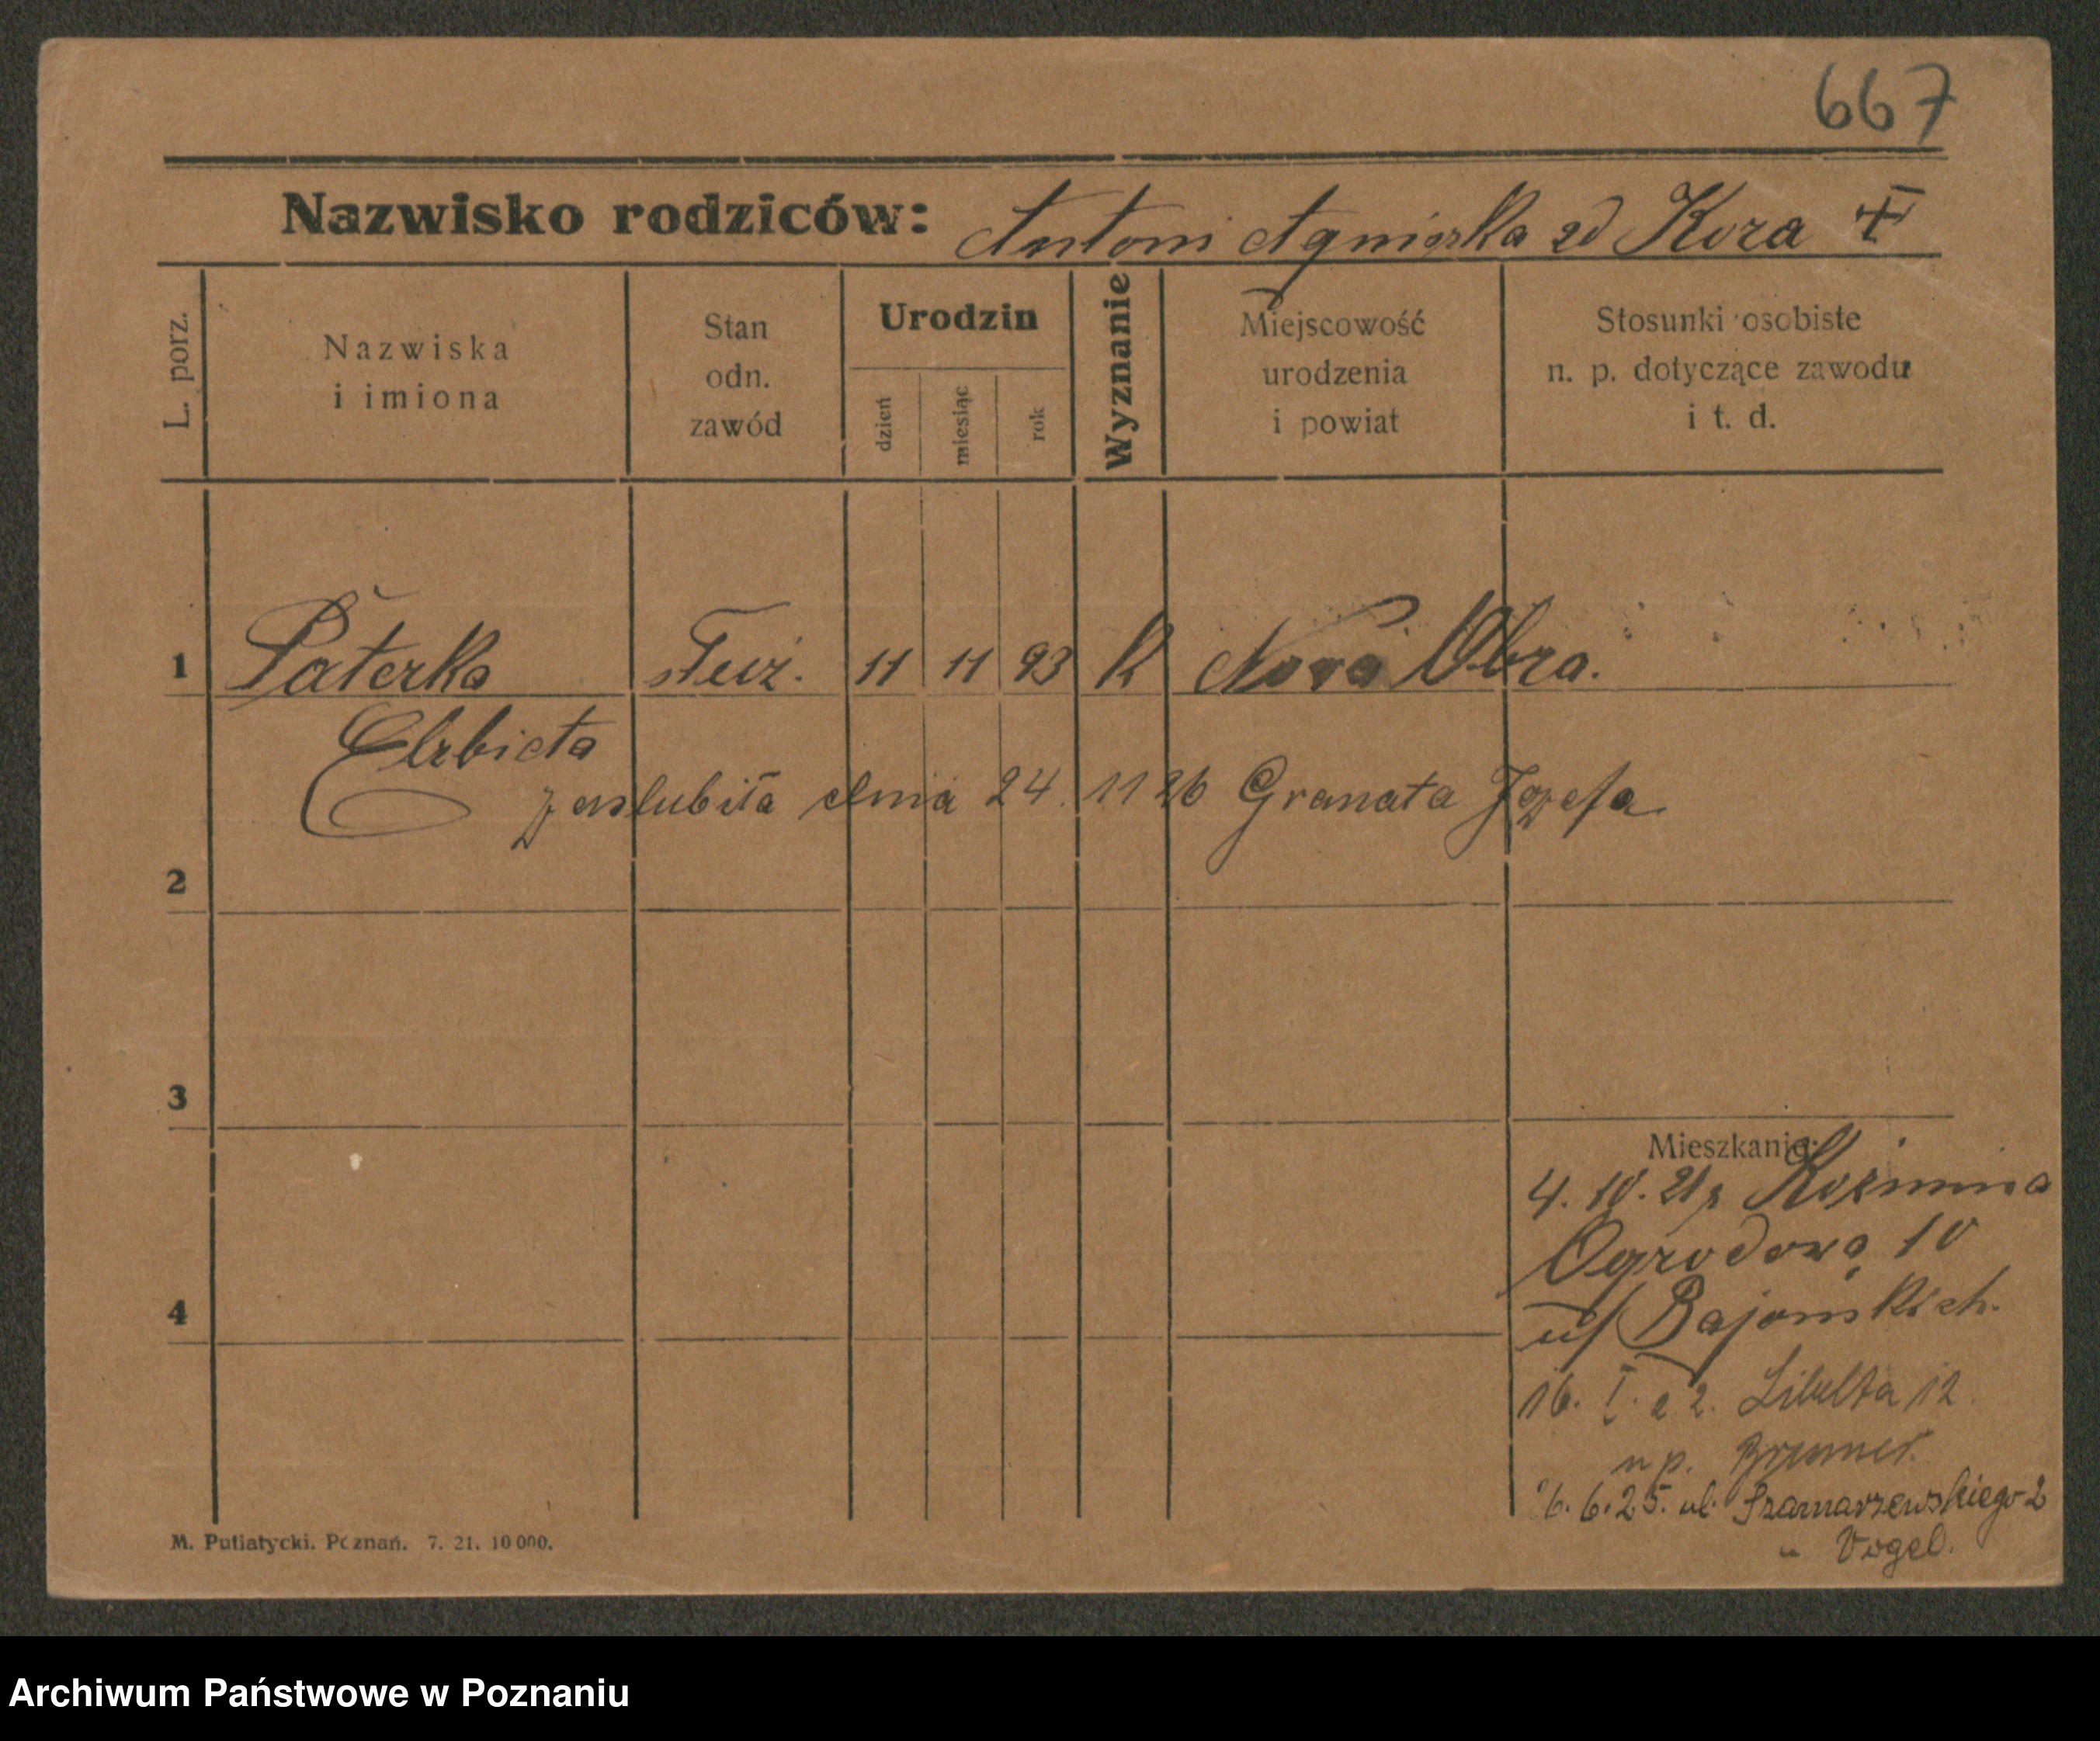 667
Nazwisko rodziców: Antoni Agnieszka zd Koza
L. porz.
Nazwiska
i imiona
Stan
odn.
zawód
Urodzin
dzień
miesiąc
rok
Wyznanie
Miejscowość
urodzenia
i powiat
Stosunki osobiste
n. p. dotyczące zawodu
i t. d.
1 Paterka służ. 11 11 93 K Nowa Obra.
Elzbieta
zaslubiła dnia 24. 11 26 Granata Jozefa.
2
3
4
Mieszkanie:
4. 10. 21 z Kozmina
Ogrodowa 10
u/ Bajonskich.
16. I. 22. Libelta 12.
u p. Brumer.
6. 6. 25. ul. Szamarzewskiego 2
u Vogel.
M. Putiatycki. Poznań. 7. 21. 10 000.
Archiwum Państwowe w Poznaniu